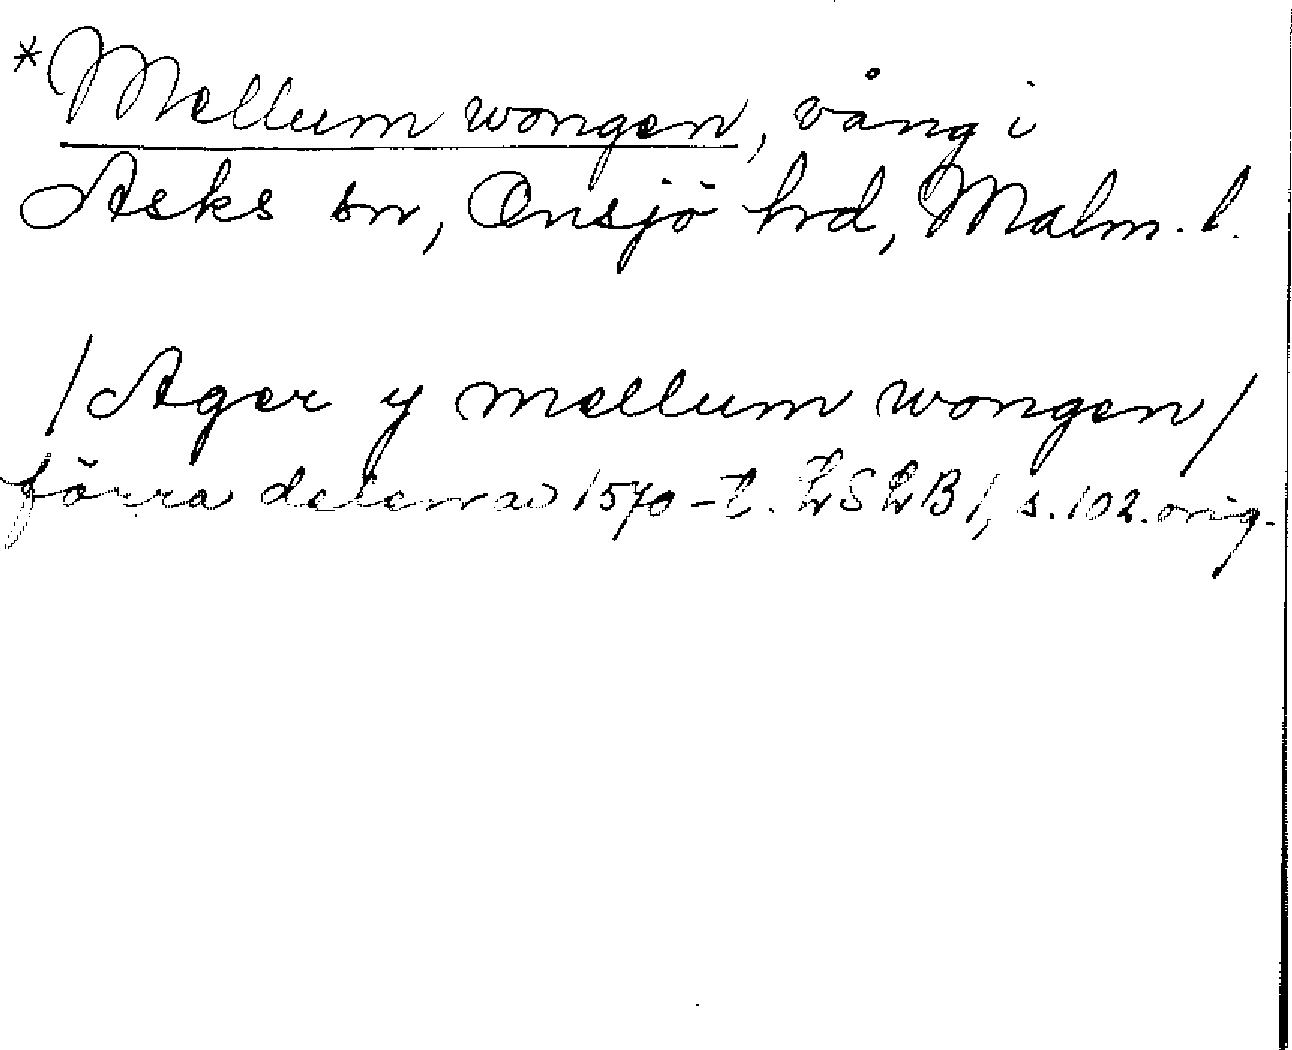 *Mellum wongen, vång i
Asks sn, Onsjö hrd, Malm. l.
/Ager y mellum wongen/
förra delen av 1570-t. LSLB 1, s. 102. orig.